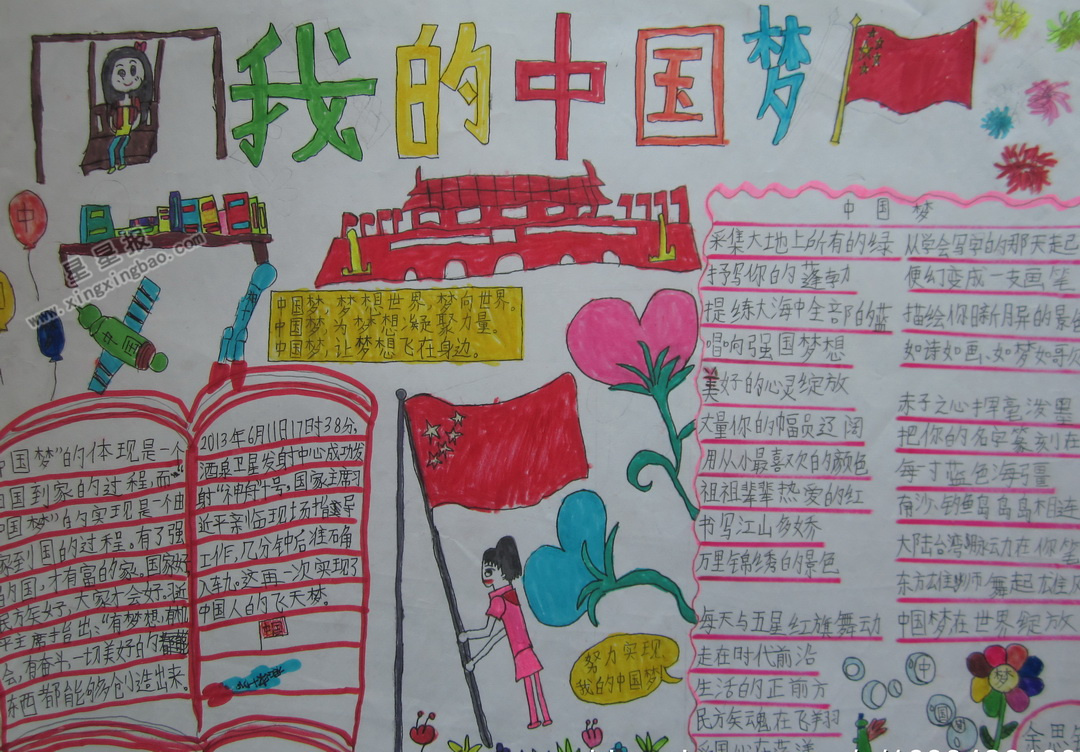 我的中国梦
中
星星报
www.xingxingbao.com
中国
神十
中国梦,梦想世界,梦向世界。
中国梦,为梦想凝聚力量。
中国梦,让梦想飞在身边。
中国梦"的体现是一个
国到家的过程,而"
中国梦"的实现是个由
家到国的过程。有了强
的国,才有富的家。国家好
民族好,大家才会好。习近
平主席指出:"有梦想,有机
会,有奋斗,一切美好的
东西都能够创造出来。
2013年6月11日17时38分,
酒泉卫星发射中心成功发
射"神舟"十号,国家主席习
近平亲临现场指挥
工作,几分钟后准确
入轨。这再一次实现了
中国人的飞天梦。
中国
努力实现
我的中国梦
中国梦
采集大地上所有的绿
抒写你的蓬勃
提练大海中全部的蓝
唱响强国梦想
美好的心灵绽放
丈量你的幅员辽阔
用从小最喜欢的颜色
祖祖辈辈热爱的红
书写江山多娇
万里锦绣的景色
每天与五星红旗舞动
走在时代前沿
生活的正前方
民族魂在飞翔
从学会写字的那天起
便幻变成一支画笔
描绘你日新月异的景色
如诗如画、如梦如歌
赤子之心挥毫泼墨
把你的名字篆刻在
每寸蓝色海疆
南沙、钓鱼岛岛岛相连
大陆台湾脉动在你
东方雄狮舞起雄风
中国梦在世界绽放
中
国
梦